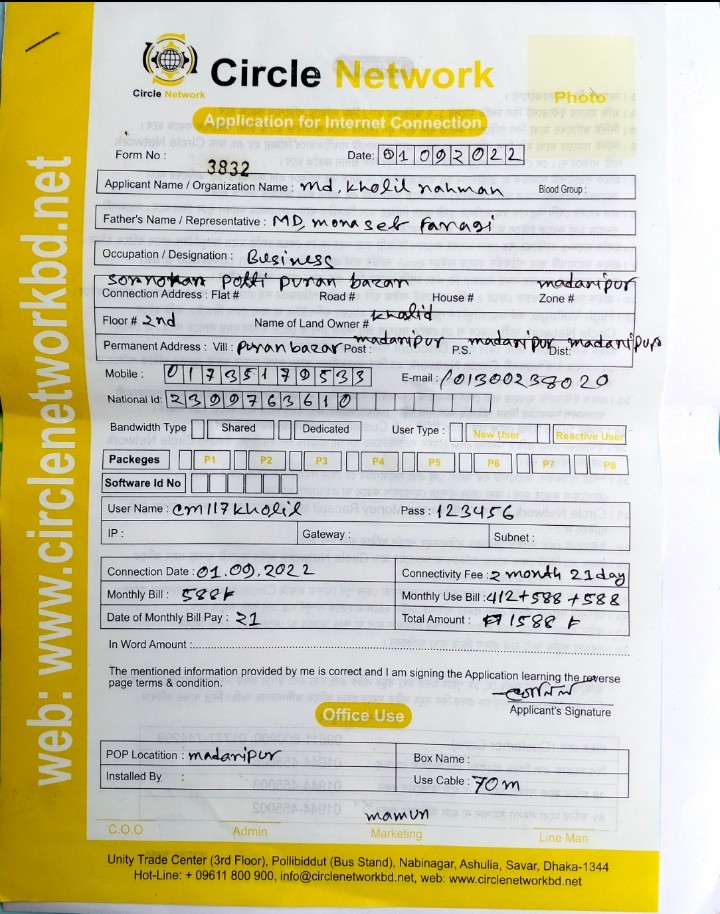 Circle Network
Circle Network
Photo
Application for Internet Connection
Form No : 3832 Date: 01 09 2022
Applicant Name / Organization Name : Md, kholil rahman Blood Group :
Father's Name / Representative : MD, monaseb faragi
Occupation / Designation : Business
potti puran bazar madaripur
Connection Address : Flat # Road # House # Zone #
Floor # 2nd Name of Land Owner # khalid
Permanent Address : Vill : puran bazar Post : madaripur P.S. madaripur Dist: madaripur
Mobile : 01735179533 E-mail : /01300238020
National Id: 2399763610
Bandwidth Type Shared Dedicated User Type : New User Reactive User
Packeges P1 P2 P3 P4 P5 P6 P7 P8
Software Id No
User Name : cm117kholil Pass : 123456
IP : Gateway : Subnet :
Connection Date : 01.09.2022 Connectivity Fee : 2 month 21day
Monthly Bill : 588৳ Monthly Use Bill : 412+588+588
Date of Monthly Bill Pay : 21 Total Amount : 1588 ৳
In Word Amount :
The mentioned information provided by me is correct and I am signing the Application learning the reverse
page terms & condition.
খোলিল
Applicant's Signature
Office Use
POP Locatition : madaripur Box Name :
Installed By : Use Cable : 70m
mamun
C.O.O Admin Marketing Line Man
Unity Trade Center (3rd Floor), Pollibiddut (Bus Stand), Nabinagar, Ashulia, Savar, Dhaka-1344
Hot-Line: + 09611 800 900, info@circlenetworkbd.net, web: www.circlenetworkbd.net
web: www.circlenetworkbd.net